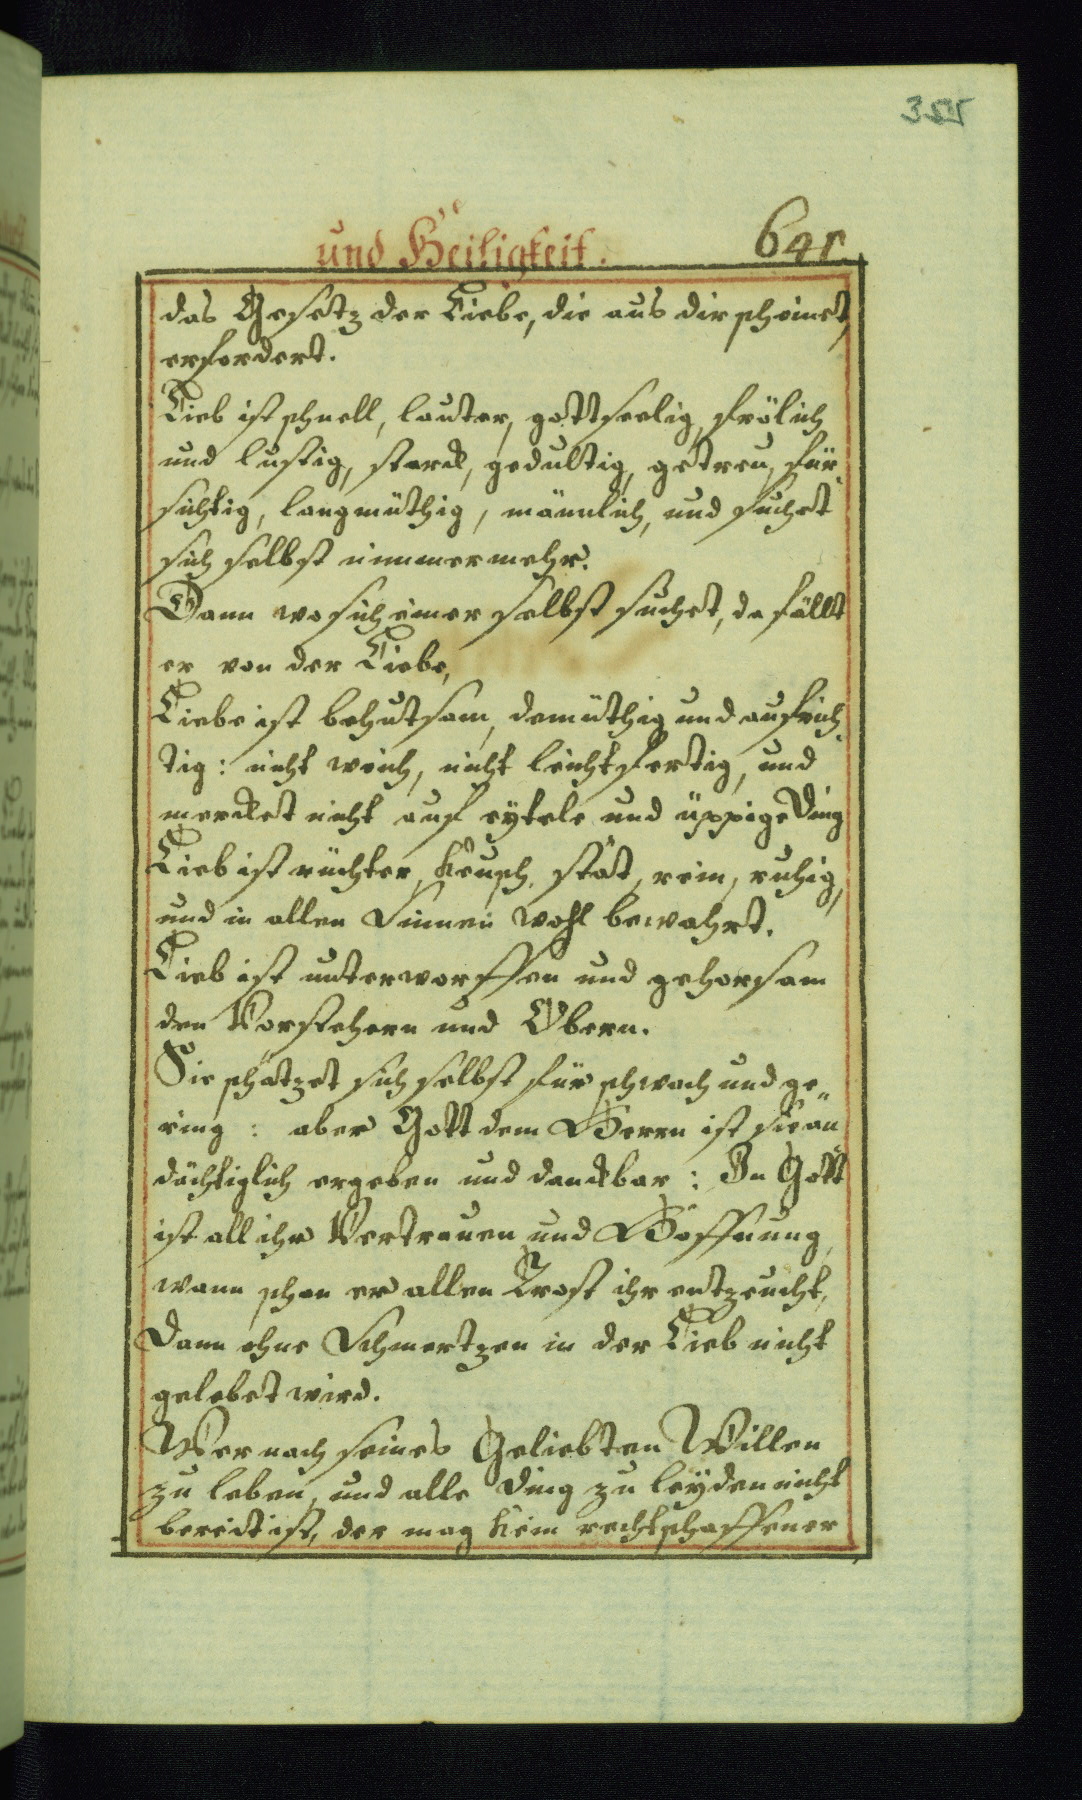 und Heiligkeit.
das Gesetz der Liebe, die aus dir scheinet,
erfordert.
Lieb ist schnell, lauter, gottseelig, frölich
und lustig, starck, gedultig, getreu, für
sichtig, langmüthig, männlich, und suchet
sich selbst nimmermehr.
Dann wo sich einer selbst suchet, da fällt
er von der Liebe,
Liebe ist behutsam, demüthig und aufrich
tig: nicht weich, nicht leichtfertig, und
mercket nicht auf eytele und üppige Ding
Lieb ist nüchter, keusch, stät, rein, ruhig,
und in allen Sinnen wohl bewahrt.
Lieb ist unterworffen und gehorsam
den Vorstehern und Obern.
Sie schätzet sich selbst für schwach und ge„
ring: aber Gott dem Herrn ist sie an
dächtiglich ergeben und danckbar: In Gott
ist all ihr Vertrauen und Hoffnung,
wann schon er allen Trost ihr entzeucht,
Dann ohne Schmertzen in der Lieb nicht
gelebet wird.
Wer nach seines Geliebten Willen
zu leben, und alle Ding zu leyden nicht
bereit ist, der mag kein rechtschaffener